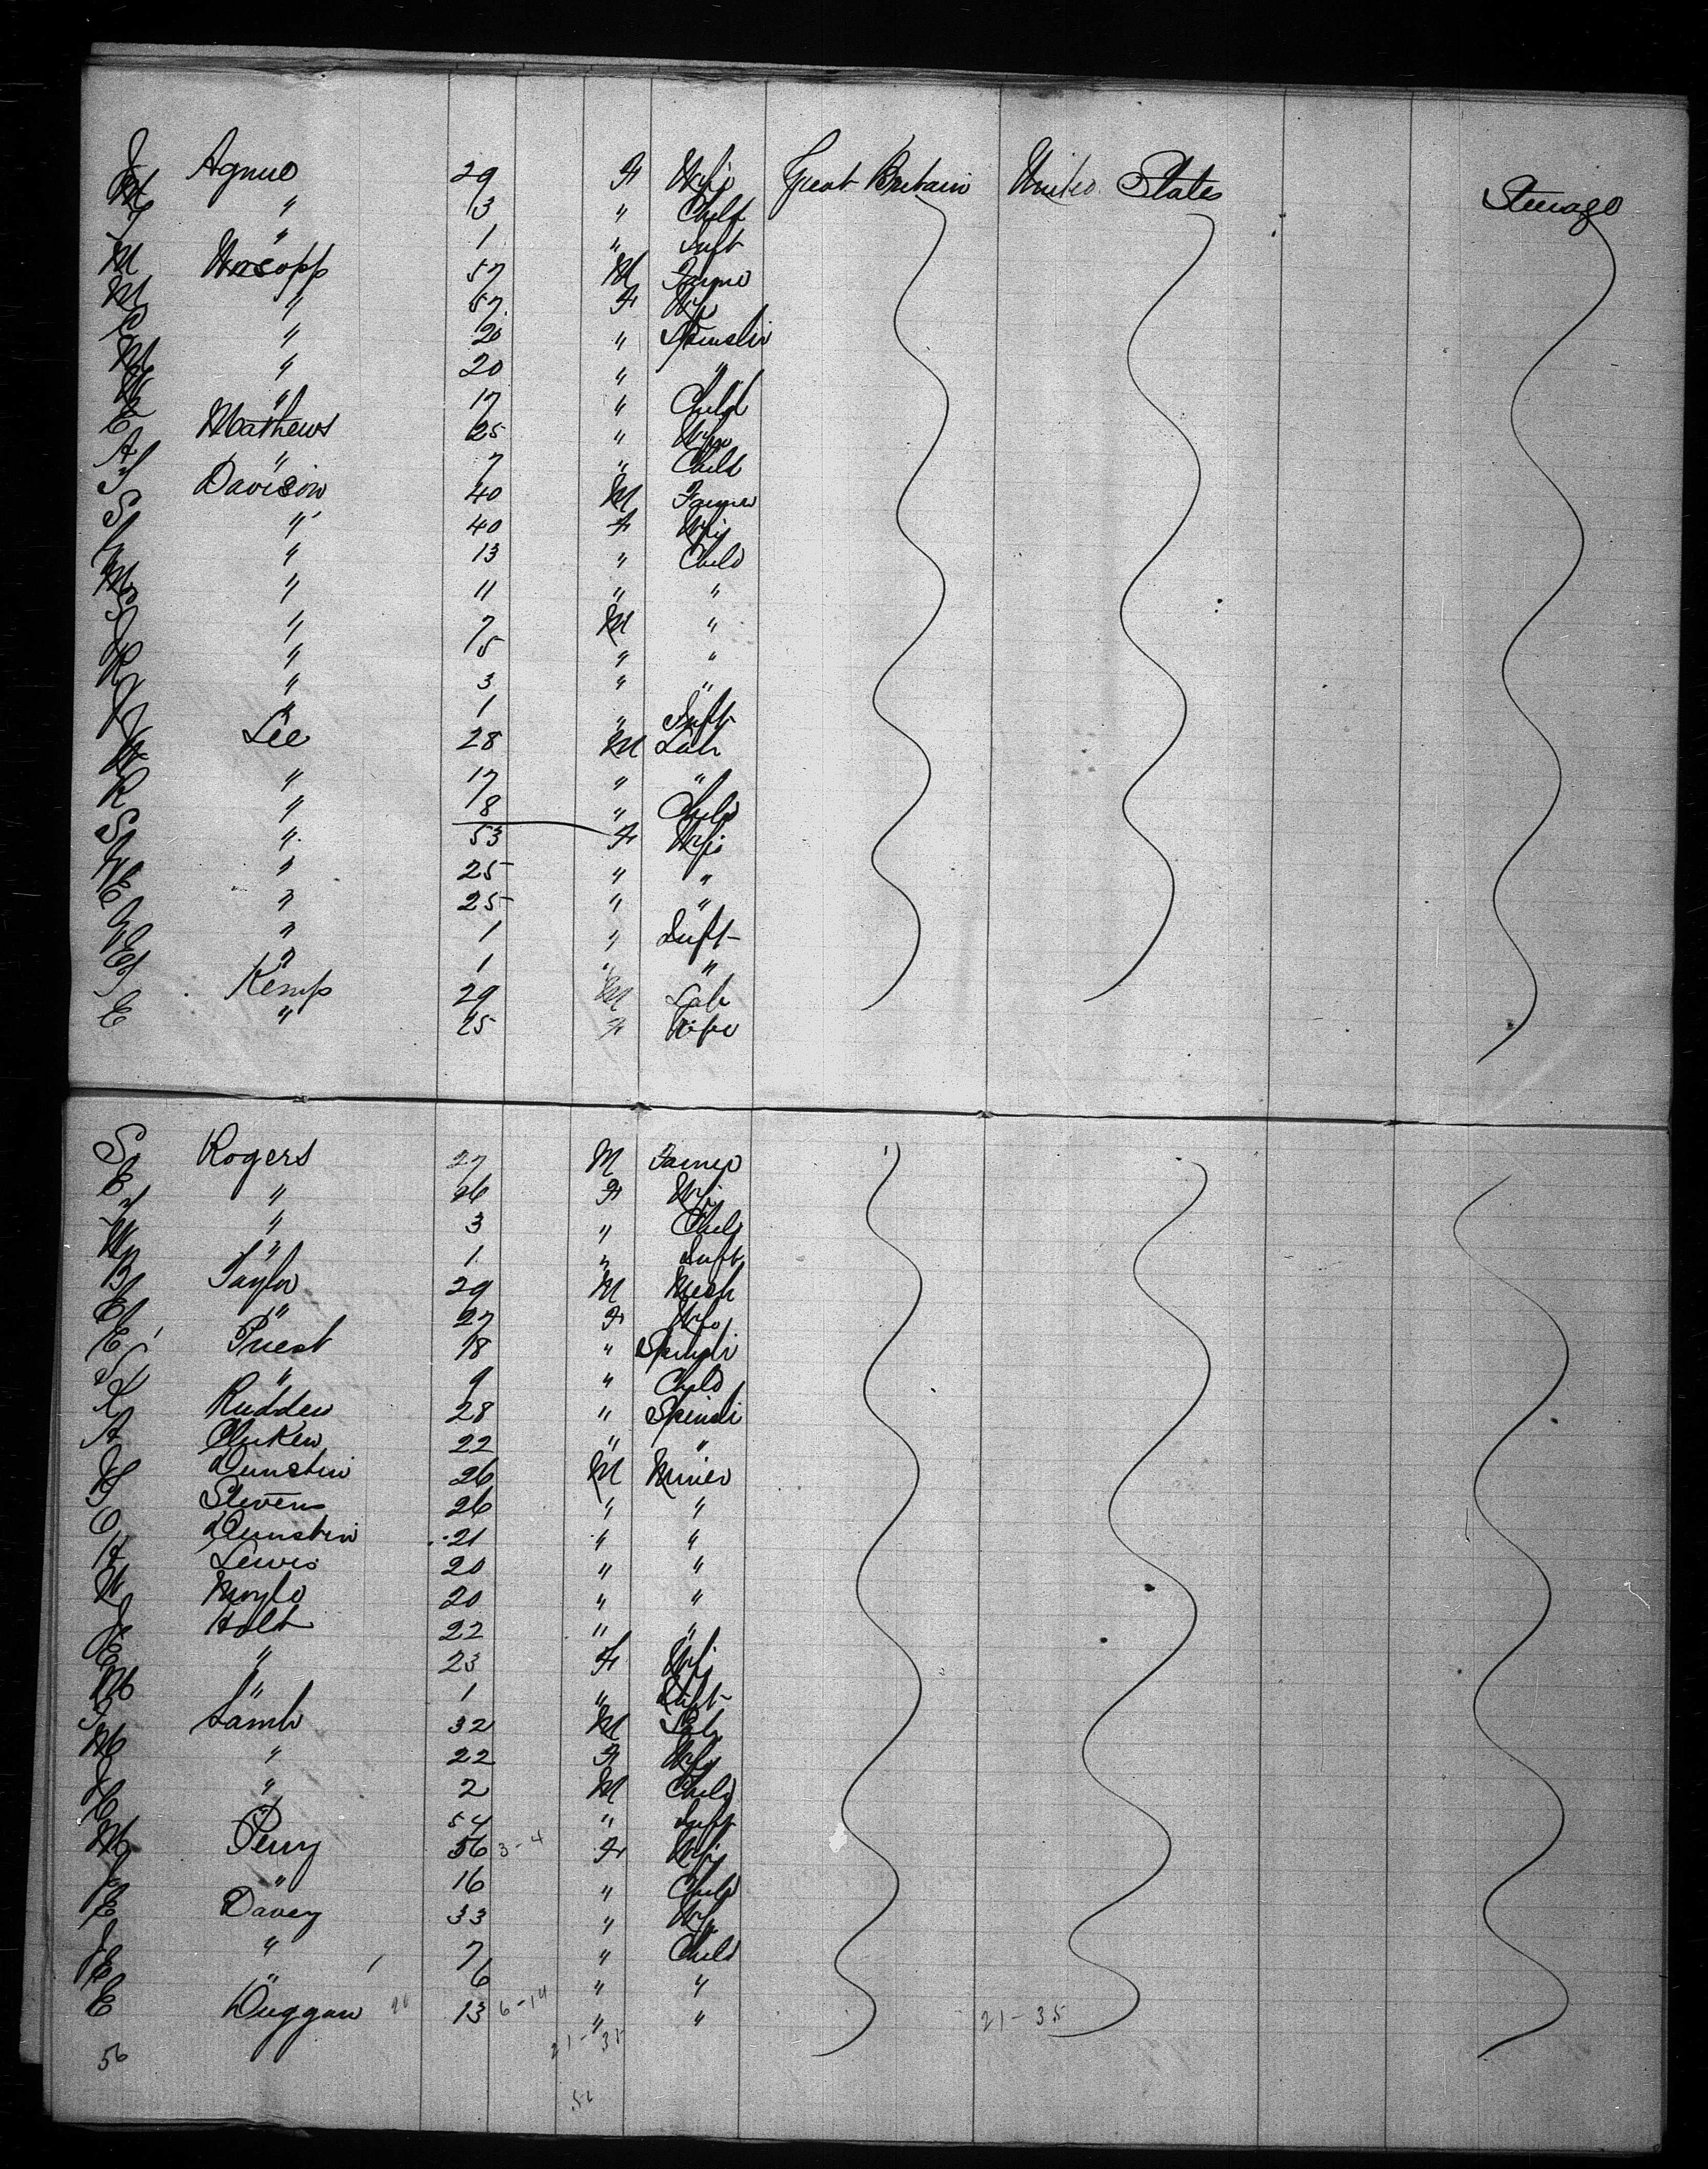 J Agnew 29 F Wife Great Britain United States Steerage
M " 3 " Child
" 1 " Inft
M Worsopp 57 M Farmer
M " 57 F Wife
" 20 " Spinster
M " 20 " "
" 17 " Child
E Mathews 25 " Wife
A " 7 " Child
J Davison 40 M Farmer
S " 40 F Wife
" 13 " Child
M " 11 " "
" 7 M "
" 5 " "
R " 3 " "
J " 1 " Inft
Lee 28 M Lab
W " 17 " "
R " 8 " Child
S " 53 F Wife
" 25 " "
E " 25 " "
" 1 " Inft
E " 1 " "
J Kemp 29 M Lab
E " 25 F Wife
S Rogers 27 M Farmer
E " 26 F Wife
" 3 " Child
" 1 " Inft
B Taylor 29 M Mech
E " 27 F Wife
E Priest 18 " Spinster
" 9 " Child
Rudden 28 " Spinster
A 22 " "
Dunstin 26 M Miner
Stevens 26 " "
O Dunstin 21 " "
Lewis 20 " "
W Moyle 20 " "
J Holt 22 " "
E " 23 F Wife
M " 1 " Inft
Lamb 32 M Lab
M " 22 F Wife
J " 2 M Child
54 " Inft
M Perry 56 3-4 F Wife
J " 16 " Child
E Davey 33 " Wife
J " 7 " Child
E " 6 " "
E Duggan 13 6-14 " " 21-35
56 21-35
56